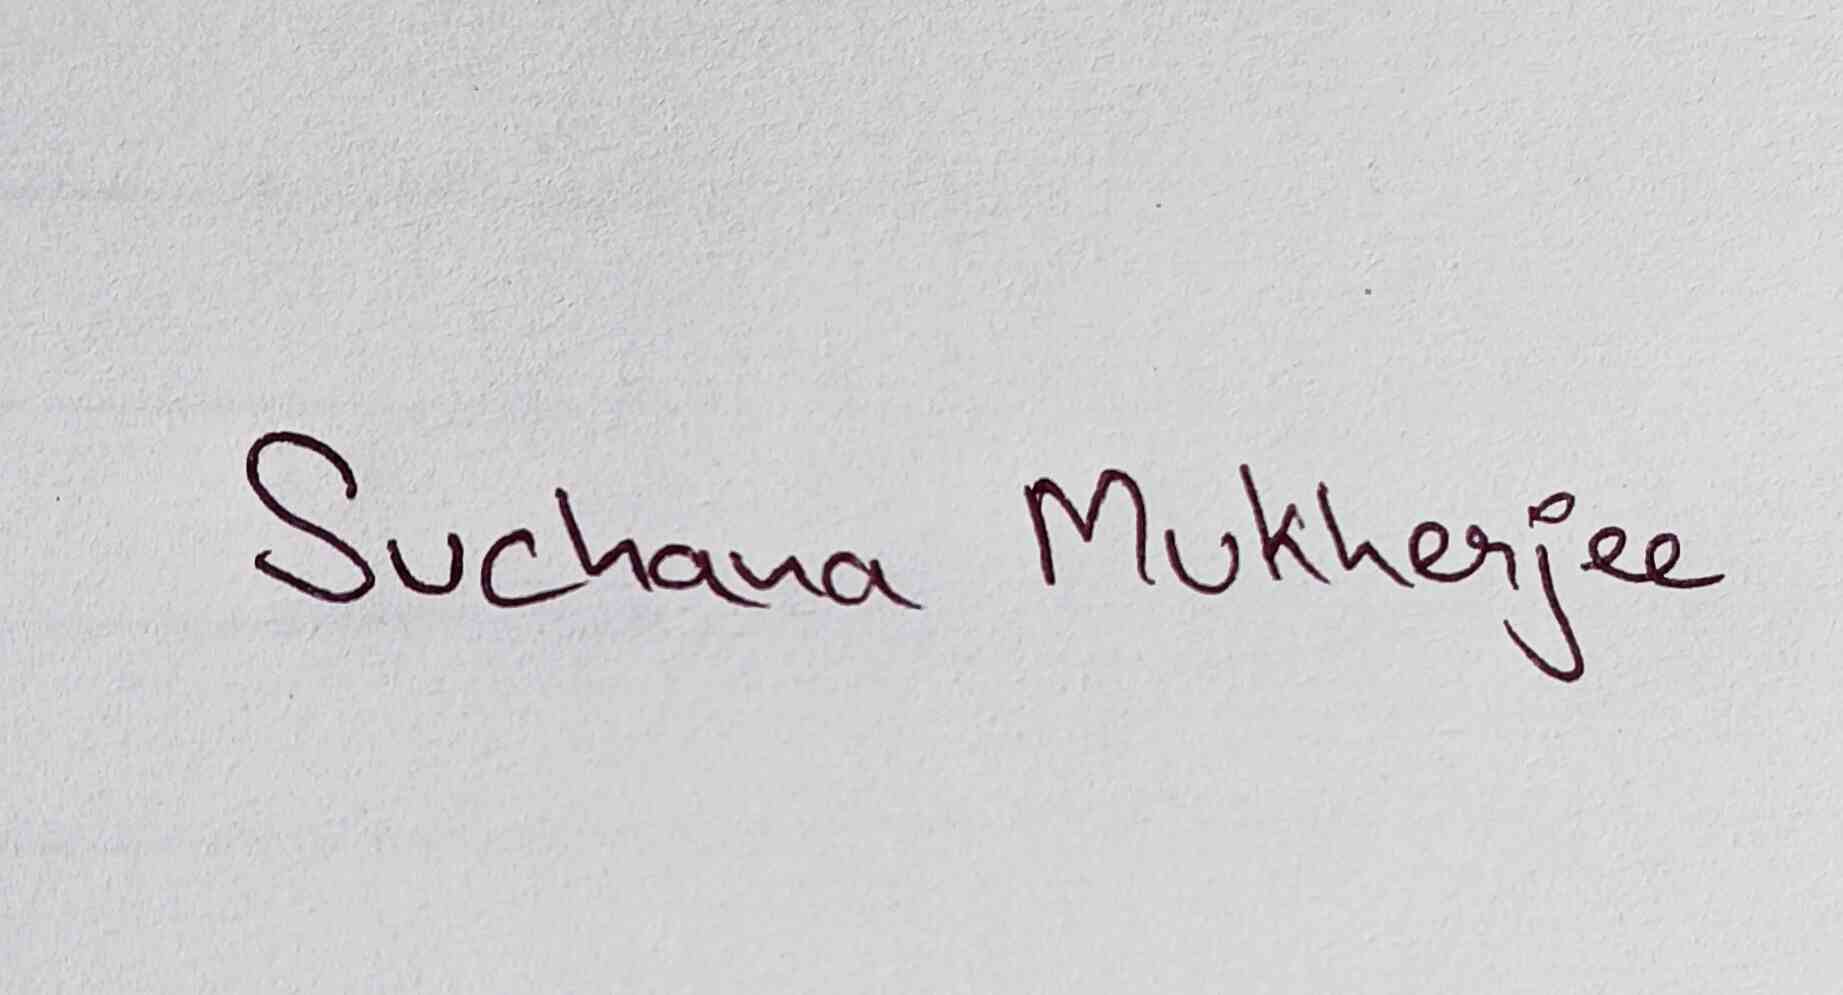 Suchana Mukherjee